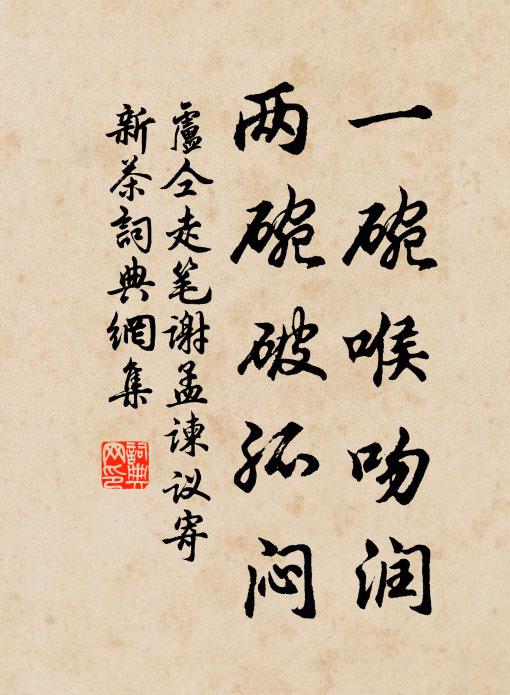 一碗喉吻润
两碗破孤闷
盧仝走笔谢孟谏议寄
新茶詞典網集
詞典网印